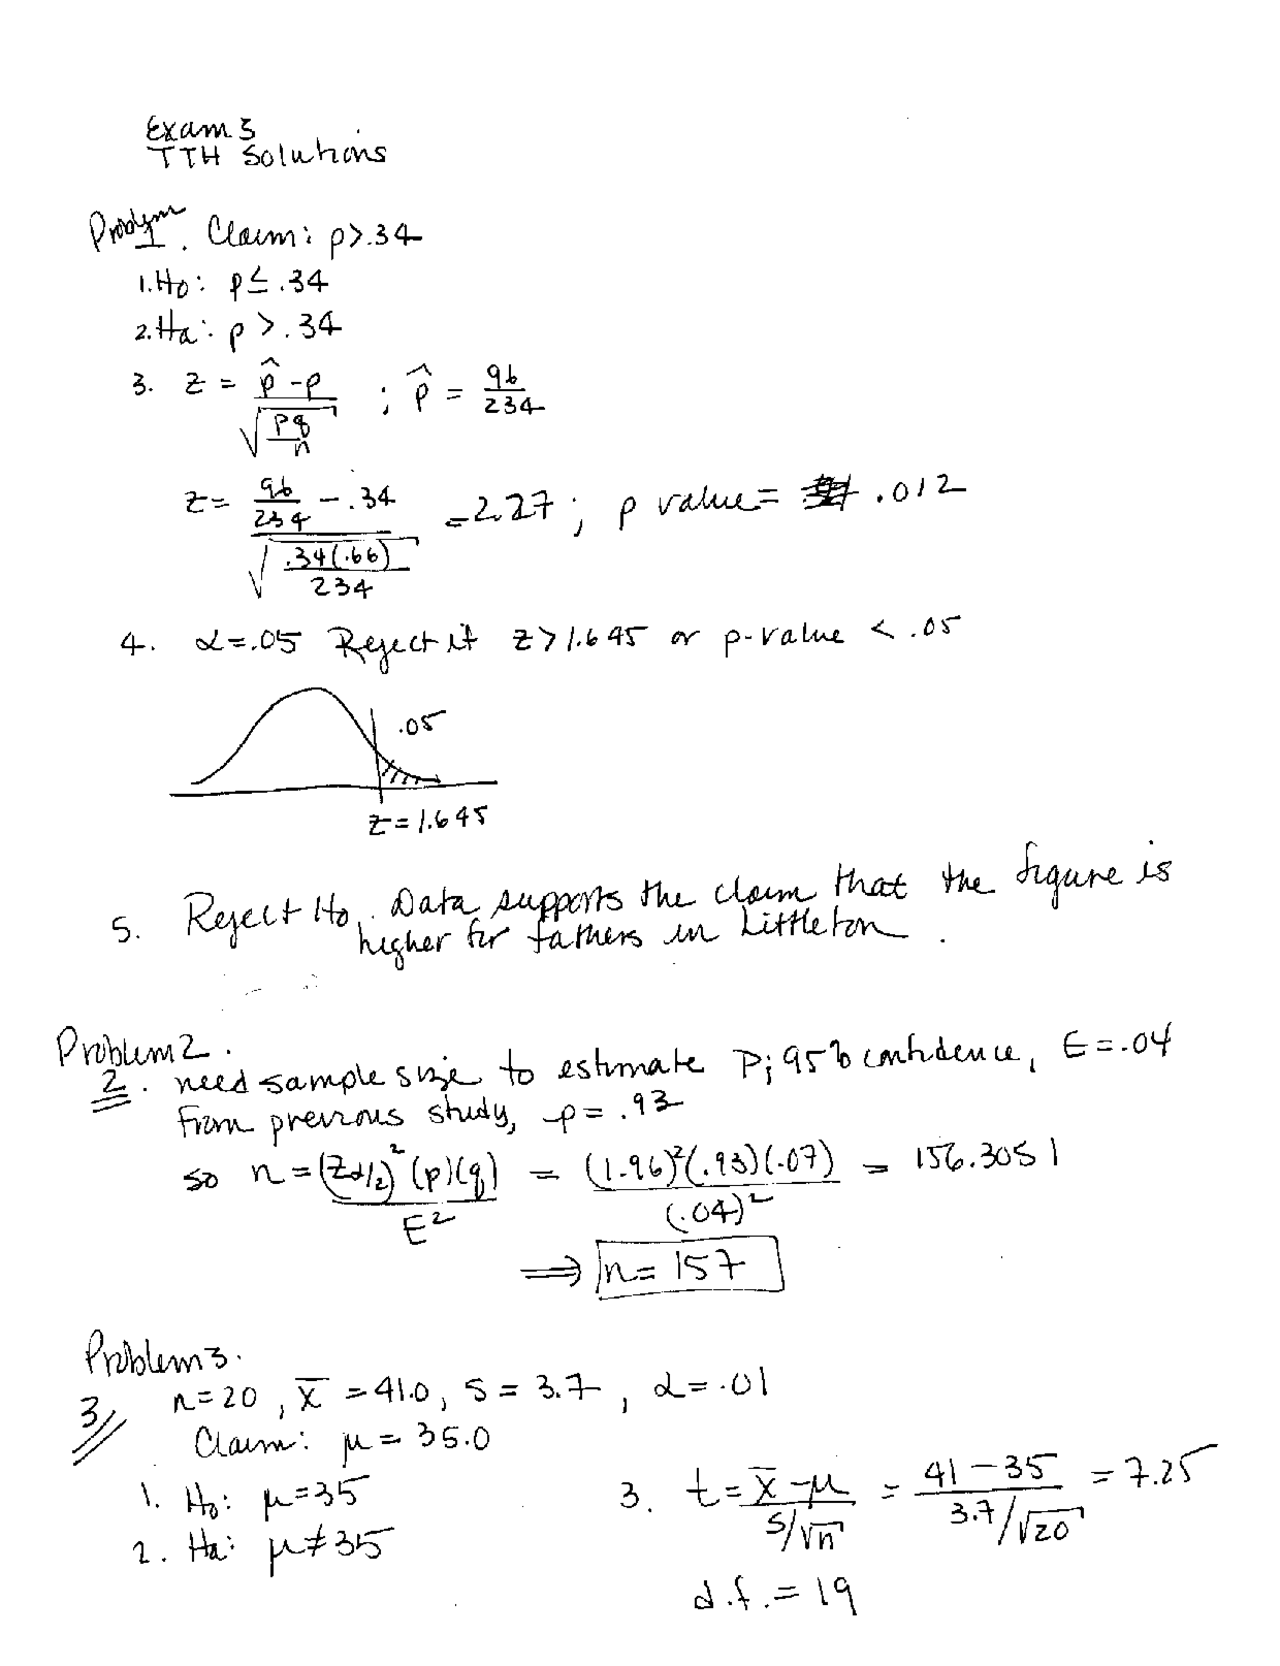 Exam 3
TTH Solutions
Problem
1. Claim: p>.34
1. Ho: p ≤ .34
2. Ha: p > .34
3. z = (p̂ - p) / √(pq/n) ; p̂ = 96/234
z = (96/234 - .34) / √(.34(.66)/234) = 2.27 ; p value = .012
4. α=.05 Reject if z > 1.645 or p-value < .05
.05
z = 1.645
5. Reject Ho. Data supports the claim that the figure is
higher for fathers in Littleton.
Problem 2.
2. need sample size to estimate p; 95% confidence, E = .04
from previous study, p = .93
so n = (Zα/2)²(p)(q) / E² = (1.96)²(.93)(.07) / (.04)² = 156.3051
⟹ n = 157
Problem 3.
3 n=20, x̄ = 41.0, s = 3.7, α = .01
Claim: μ = 35.0
1. Ho: μ=35
2. Ha: μ≠35
3. t = (x̄ - μ) / (s/√n) = (41 - 35) / (3.7/√20) = 7.25
d.f. = 19